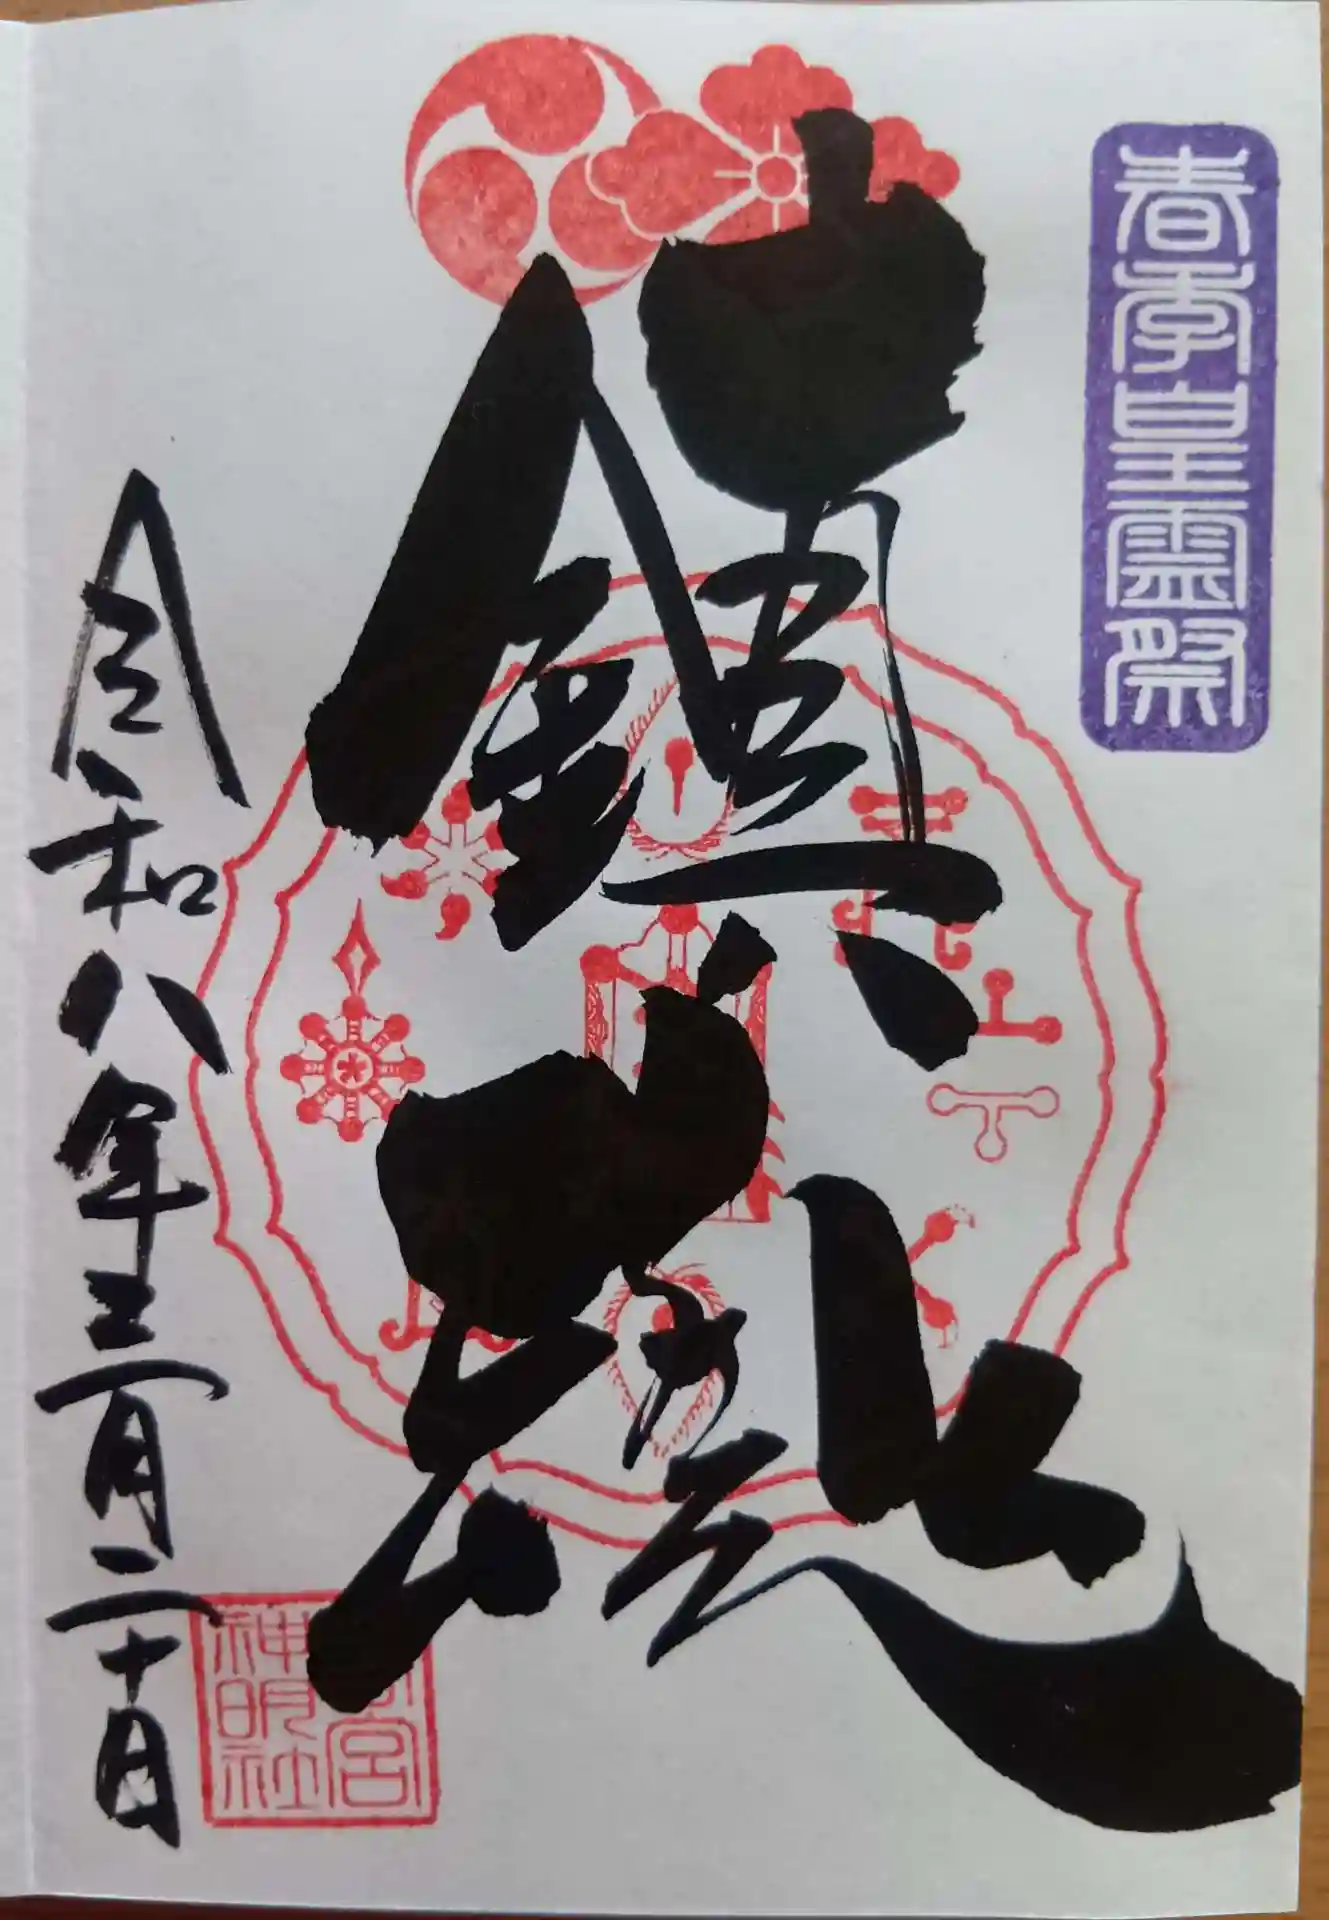 春季皇霊祭
鎮魂
令和八年三月二十日
宮
神明社